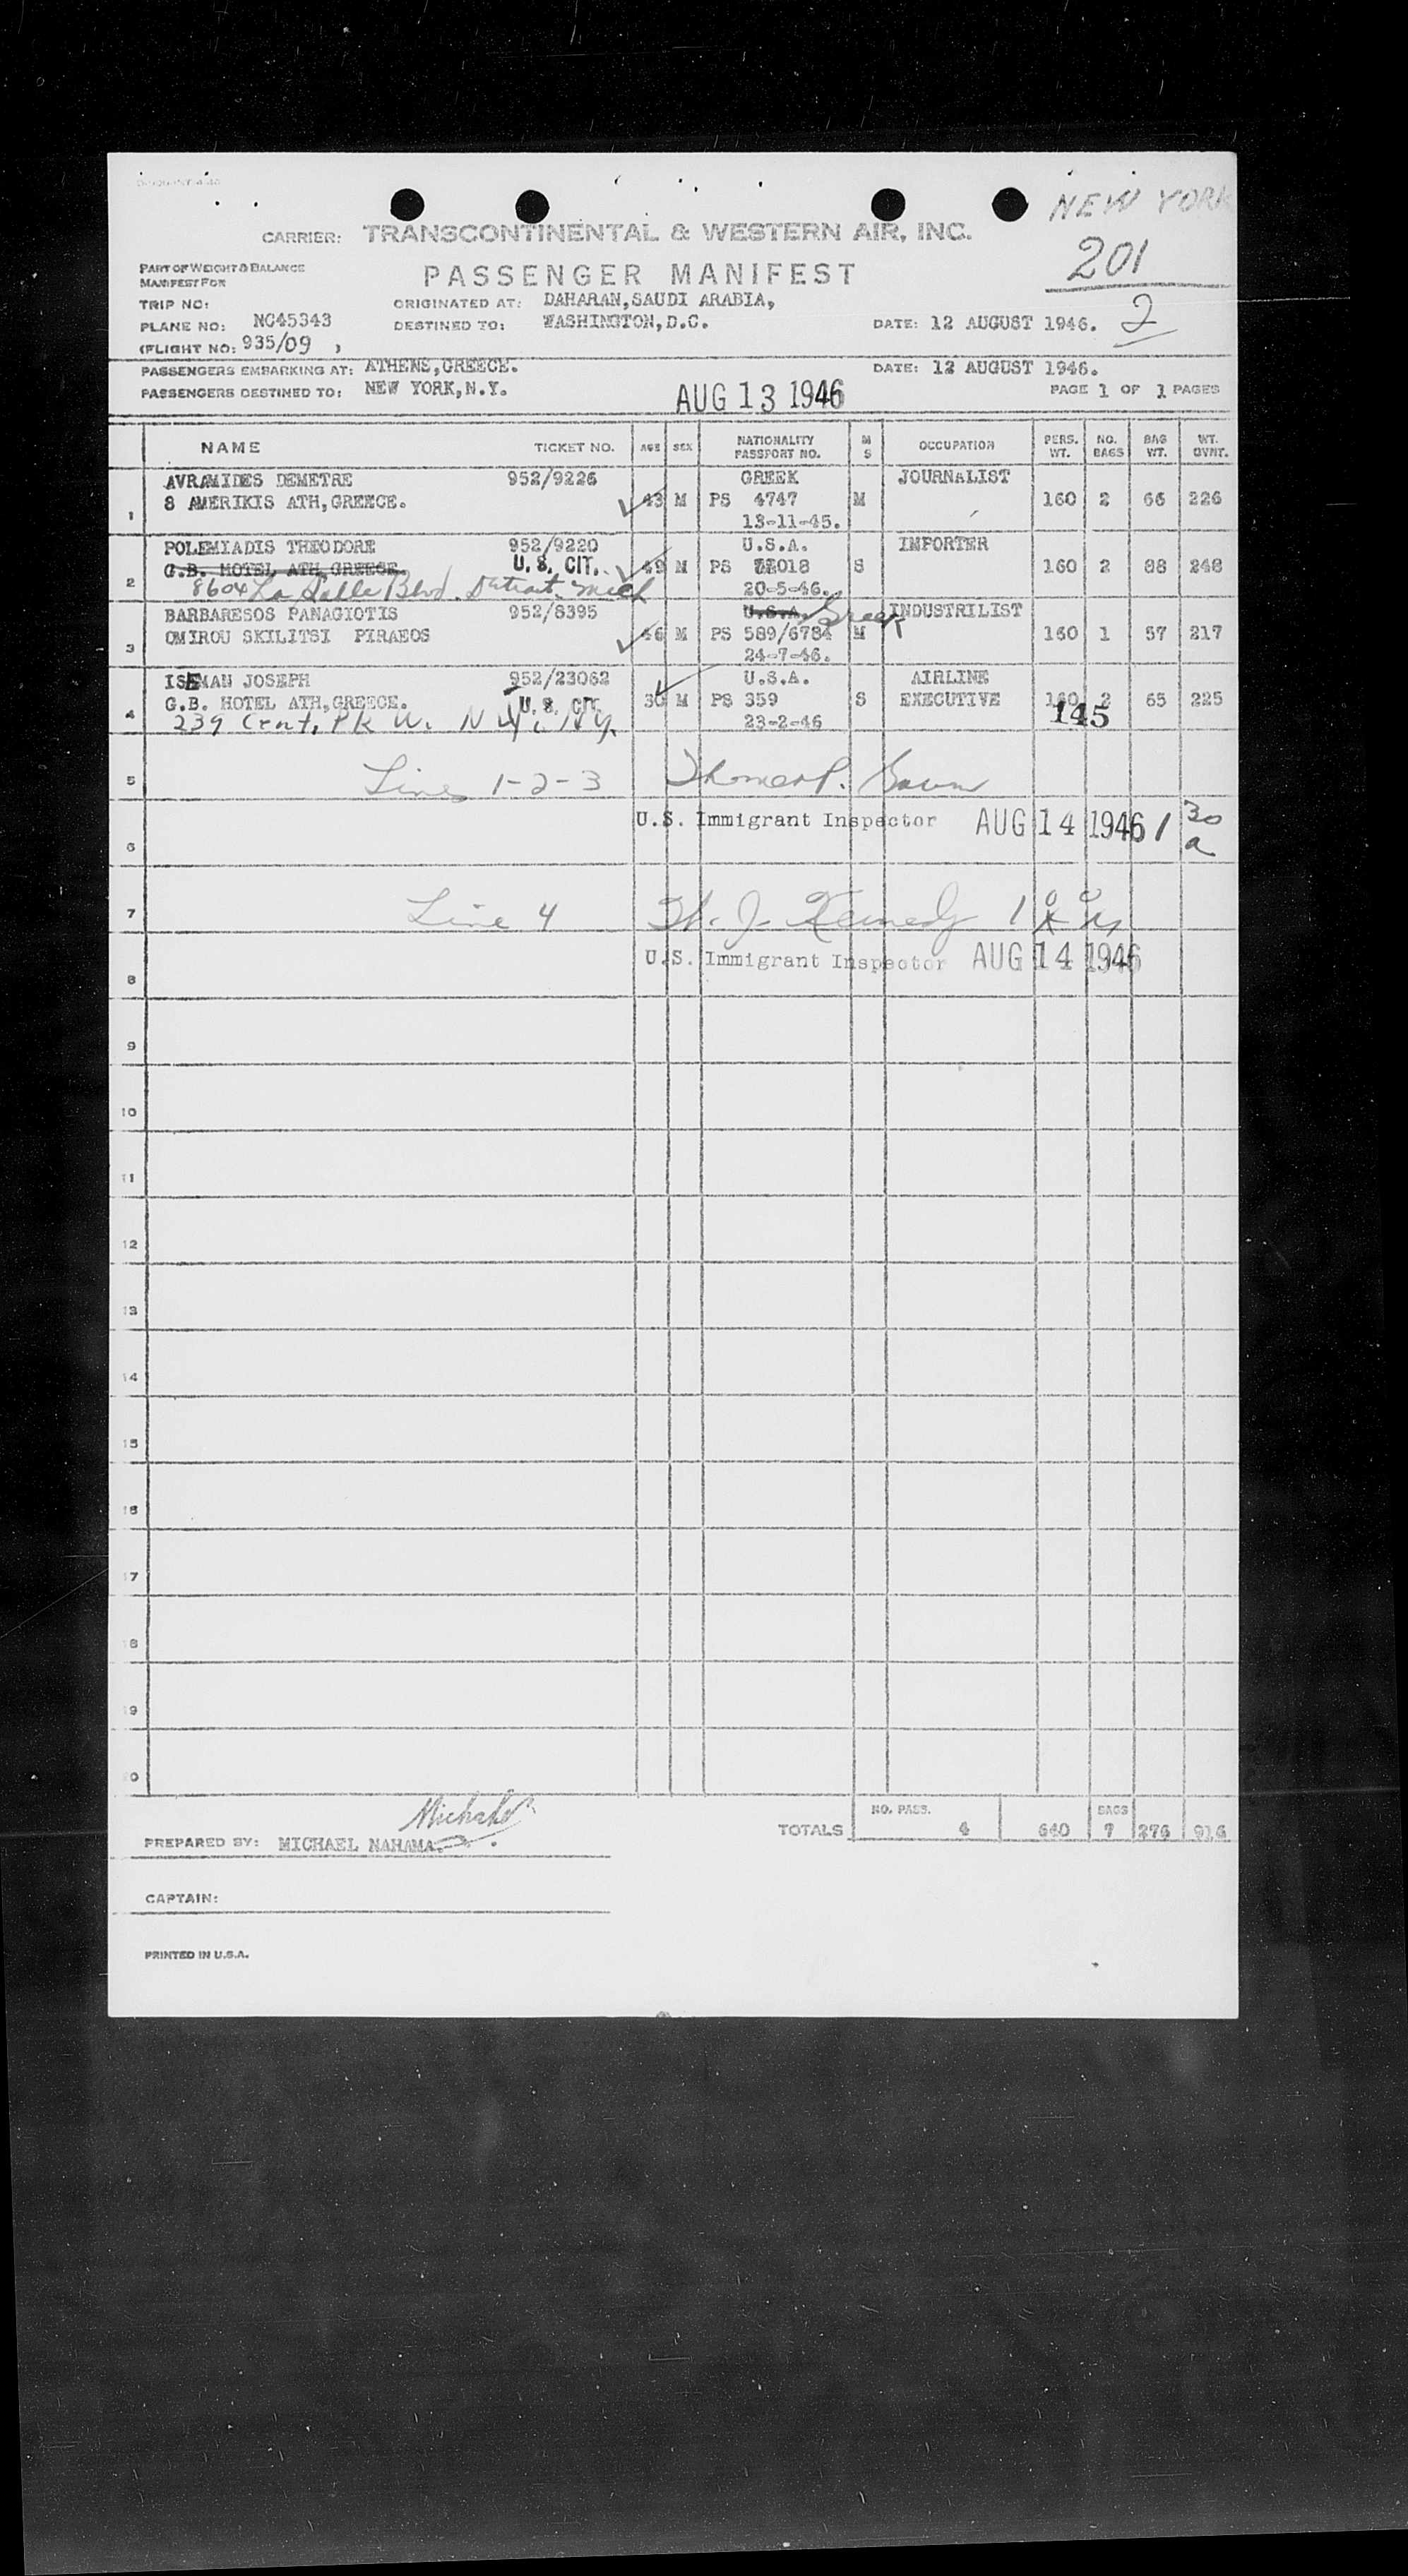 NEW YORK
CARRIER: TRANSCONTINENTAL & WESTERN AIR, INC.
201
PART OF WEIGHT & BALANCE
MANIFEST FOR
PASSENGER MANIFEST
2
TRIP NO:
ORIGINATED AT: DAHARAN,SAUDI ARABIA,
PLANE NO: NC45343
DESTINED TO: WASHINGTON,D.C.
DATE: 12 AUGUST 1946.
(FLIGHT NO: 935/09 )
PASSENGERS EMBARKING AT: ATHENS,GREECE.
DATE: 12 AUGUST 1946.
PASSENGERS DESTINED TO: NEW YORK,N.Y.
AUG 13 1946
PAGE 1 OF 1 PAGES
NAME TICKET NO. AGE SEX NATIONALITY PASSPORT NO. M S OCCUPATION PERS. WT. NO. BAGS BAG WT. WT. OVNT.
AVRAMIDES DEMETRE 952/9226 GREEK JOURNALIST
8 AMERIKIS ATH,GREECE. 43 M PS 4747 M 160 2 66 226
1 13-11-45.
POLEMIADIS THEODORE 952/9220 U.S.A. IMPORTER
G.B. HOTEL ATH,GREECE. U. S. CIT. 49 M PS 018 S 160 2 88 248
2 8604 La Salle Blvd. Detroit Mich 20-5-46.
BARBARESOS PANAGIOTIS 952/8395 U.S.A. Greek INDUSTRILIST
OMIROU SKILITSI PIRAEOS 46 M PS 589/6784 M 160 1 57 217
3 24-7-46.
ISEMAN JOSEPH 952/23062 U.S.A. AIRLINE
G.B. HOTEL ATH,GREECE. U. S. CIT. 30 M PS 359 S EXECUTIVE 160 2 65 225
4 239 Cent. Pk W. N.Y. 23-2-46 145
5 Lines 1-2-3 Thomas P.
U.S. Immigrant Inspector AUG 14 1946 1 30 a
6
7 Line 4 J. Kennedy 1 00
U.S. Immigrant Inspector AUG 14 1946
8
9
10
11
12
13
14
15
16
17
18
19
20
NO. PASS. BAGS
TOTALS 4 640 7 276 916
PREPARED BY: MICHAEL NAHAMA.
CAPTAIN:
PRINTED IN U.S.A.